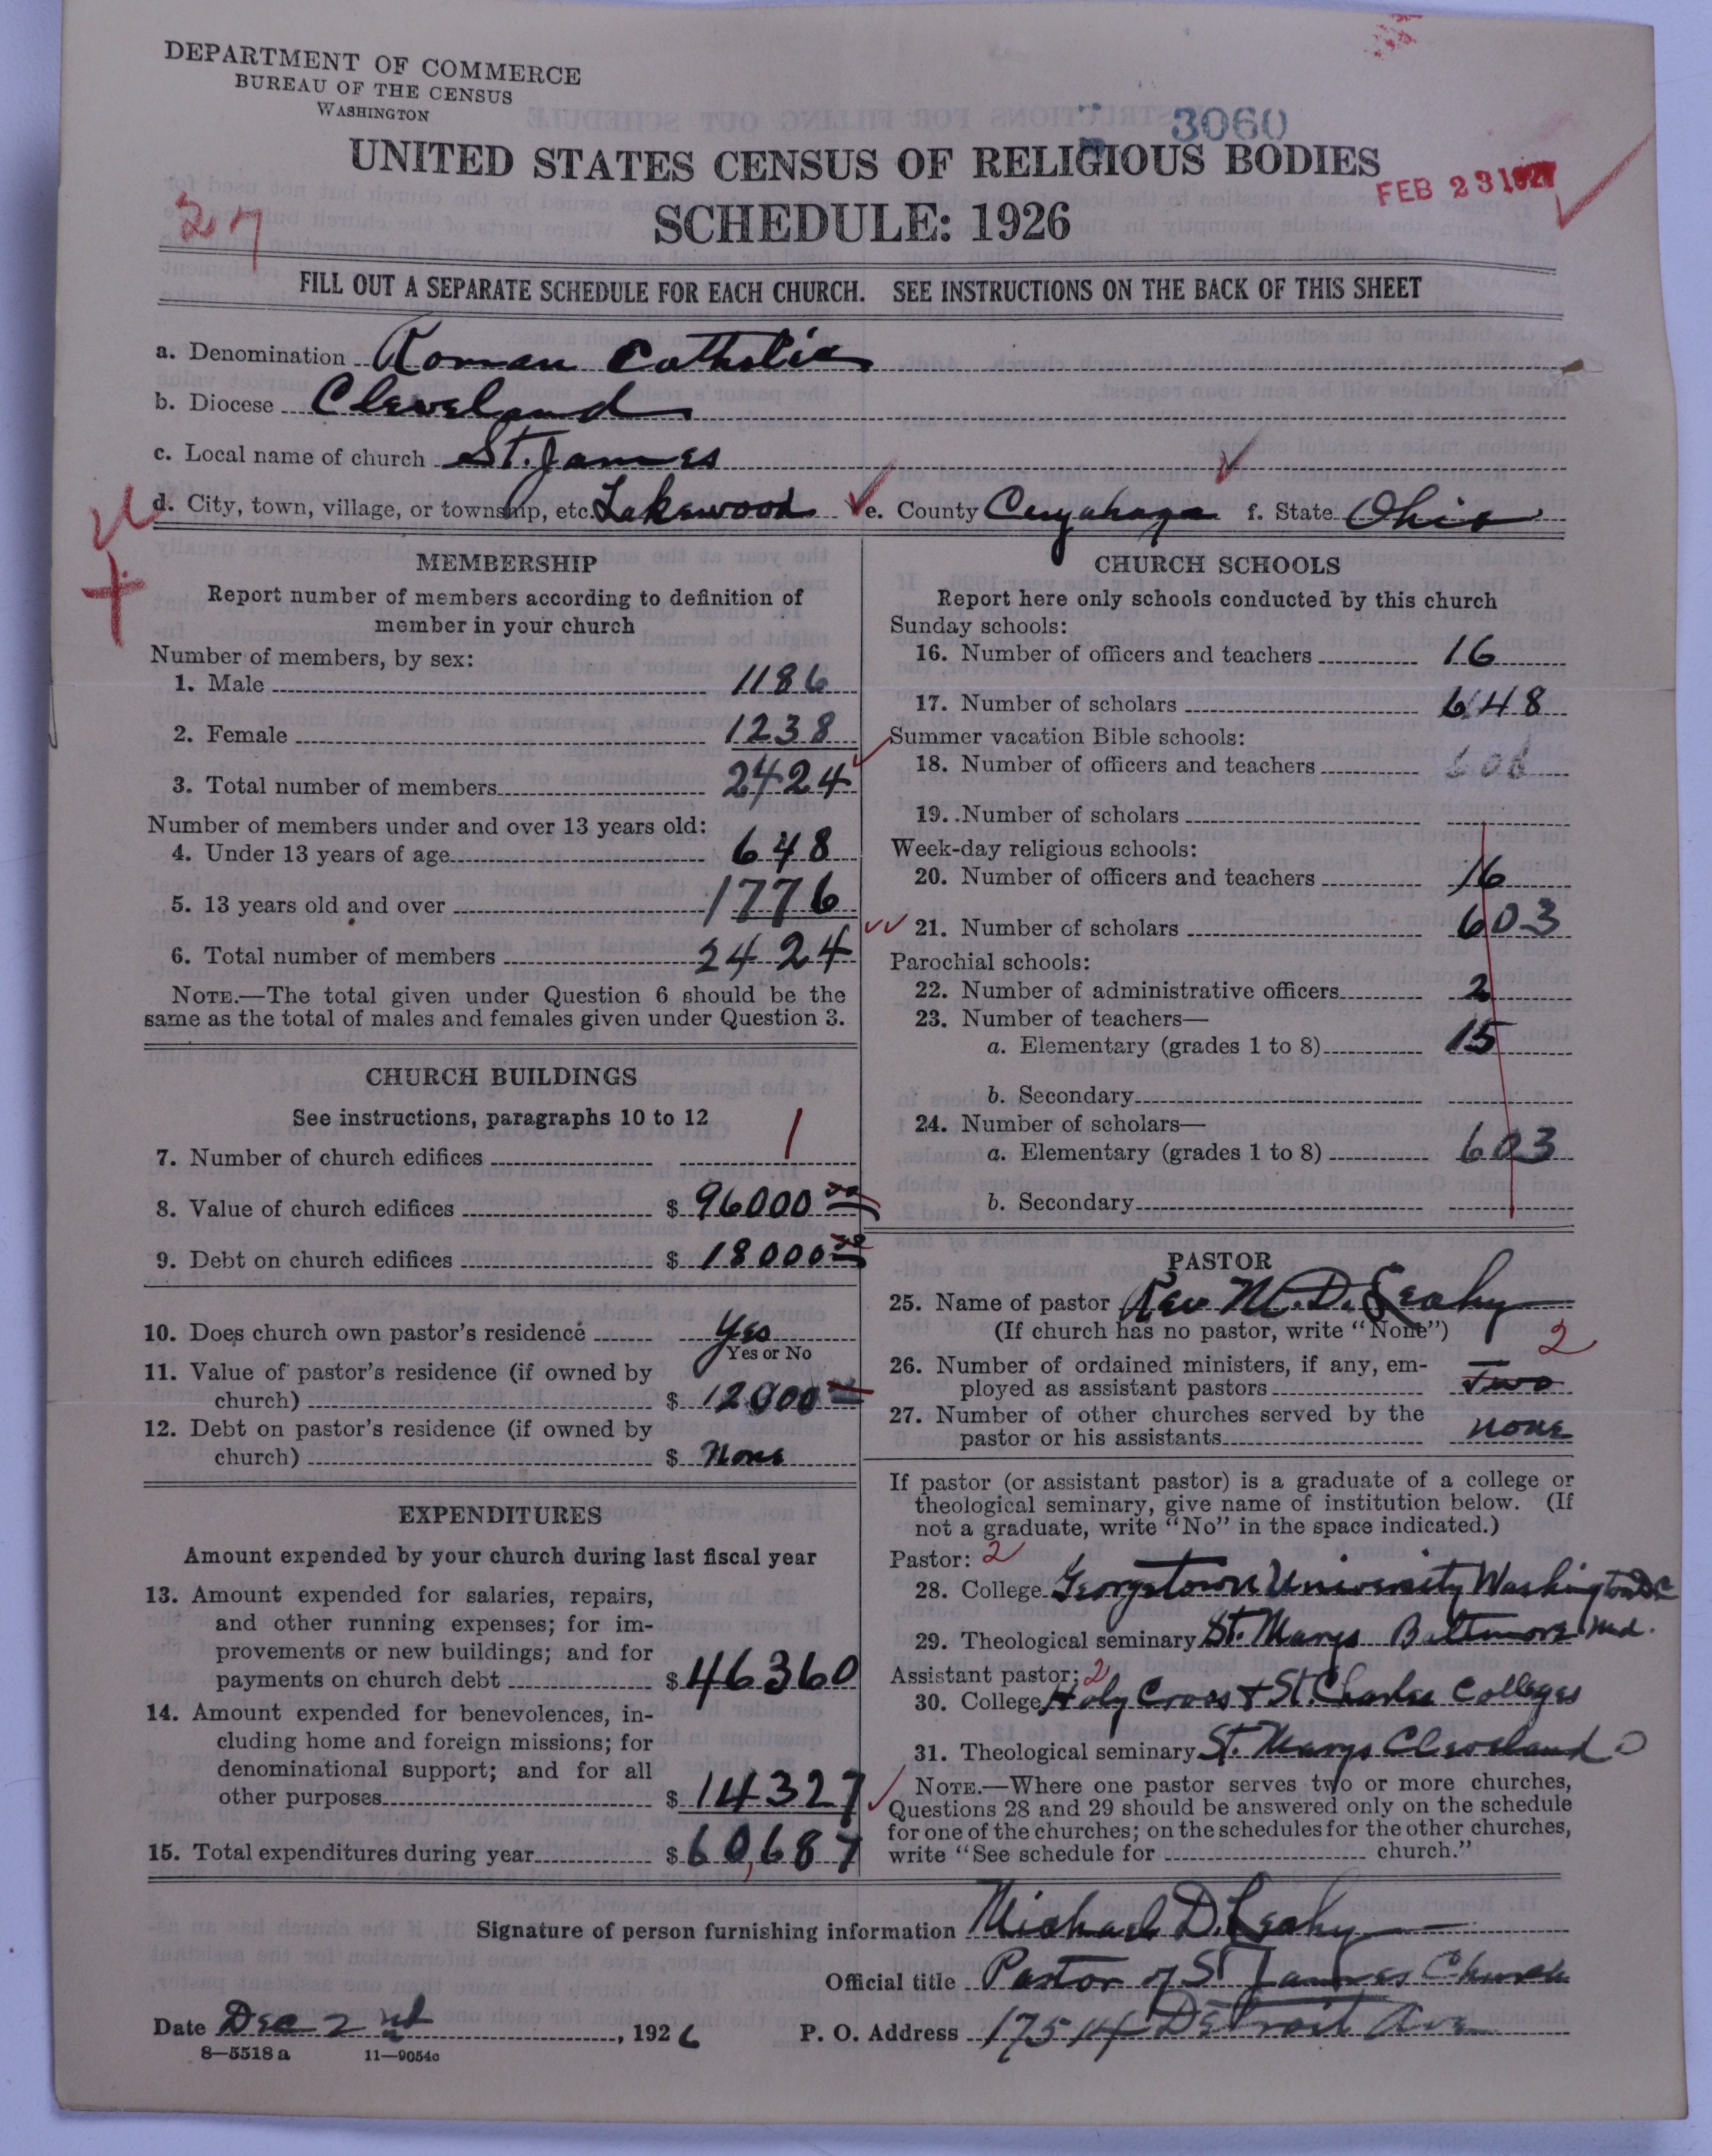 DEPARTMENT OF COMMERCE
BUREAU OF THE CENSUS
WASHINGTON
3060
UNITED STATES CENSUS OF RELIGIOUS BODIES
FEB 23 1927
27
SCHEDULE: 1926
FILL OUT A SEPARATE SCHEDULE FOR EACH CHURCH. SEE INSTRUCTIONS ON THE BACK OF THIS SHEET
a. Denomination Roman Catholic
b. Diocese Cleveland
c. Local name of church St. James
d. City, town, village, or township, etc. Lakewood e. County Cuyahoga f. State Ohio
MEMBERSHIP
Report number of members according to definition of
member in your church
Number of members, by sex:
1. Male 1186
2. Female 1238
3. Total number of members 2424
Number of members under and over 13 years old:
4. Under 13 years of age 648
5. 13 years old and over 1776
6. Total number of members 2424
NOTE.—The total given under Question 6 should be the
same as the total of males and females given under Question 3.
CHURCH BUILDINGS
See instructions, paragraphs 10 to 12
7. Number of church edifices 1
8. Value of church edifices $ 96000 00
9. Debt on church edifices $ 18000 00
10. Does church own pastor's residence Yes
Yes or No
11. Value of pastor's residence (if owned by
church) $ 12000
12. Debt on pastor's residence (if owned by
church) $ None
EXPENDITURES
Amount expended by your church during last fiscal year
13. Amount expended for salaries, repairs,
and other running expenses; for im-
provements or new buildings; and for
payments on church debt $ 46360
14. Amount expended for benevolences, in-
cluding home and foreign missions; for
denominational support; and for all
other purposes $ 14327
15. Total expenditures during year $ 60,687
CHURCH SCHOOLS
Report here only schools conducted by this church
Sunday schools:
16. Number of officers and teachers 16
17. Number of scholars 648
Summer vacation Bible schools:
18. Number of officers and teachers
19. Number of scholars
Week-day religious schools:
20. Number of officers and teachers 16
21. Number of scholars 603
Parochial schools:
22. Number of administrative officers 2
23. Number of teachers—
a. Elementary (grades 1 to 8) 15
b. Secondary
24. Number of scholars—
a. Elementary (grades 1 to 8) 603
b. Secondary
PASTOR
25. Name of pastor Rev M. D. Leahy
(If church has no pastor, write "None")
2
26. Number of ordained ministers, if any, em-
ployed as assistant pastors Two
27. Number of other churches served by the
pastor or his assistants none
If pastor (or assistant pastor) is a graduate of a college or
theological seminary, give name of institution below. (If
not a graduate, write "No" in the space indicated.)
Pastor: 2
28. College Georgetown University Washington DC
29. Theological seminary St. Marys Baltimore Md.
Assistant pastor: 2
30. College Holy Cross & St. Charles Colleges
31. Theological seminary St. Marys Cleveland O
NOTE.—Where one pastor serves two or more churches,
Questions 28 and 29 should be answered only on the schedule
for one of the churches; on the schedules for the other churches,
write "See schedule for church."
Signature of person furnishing information Michael D. Leahy
Official title Pastor of St James Church
Date Dec 2nd, 1926 P. O. Address 17514 Detroit Ave
8—5518a 11—9054c